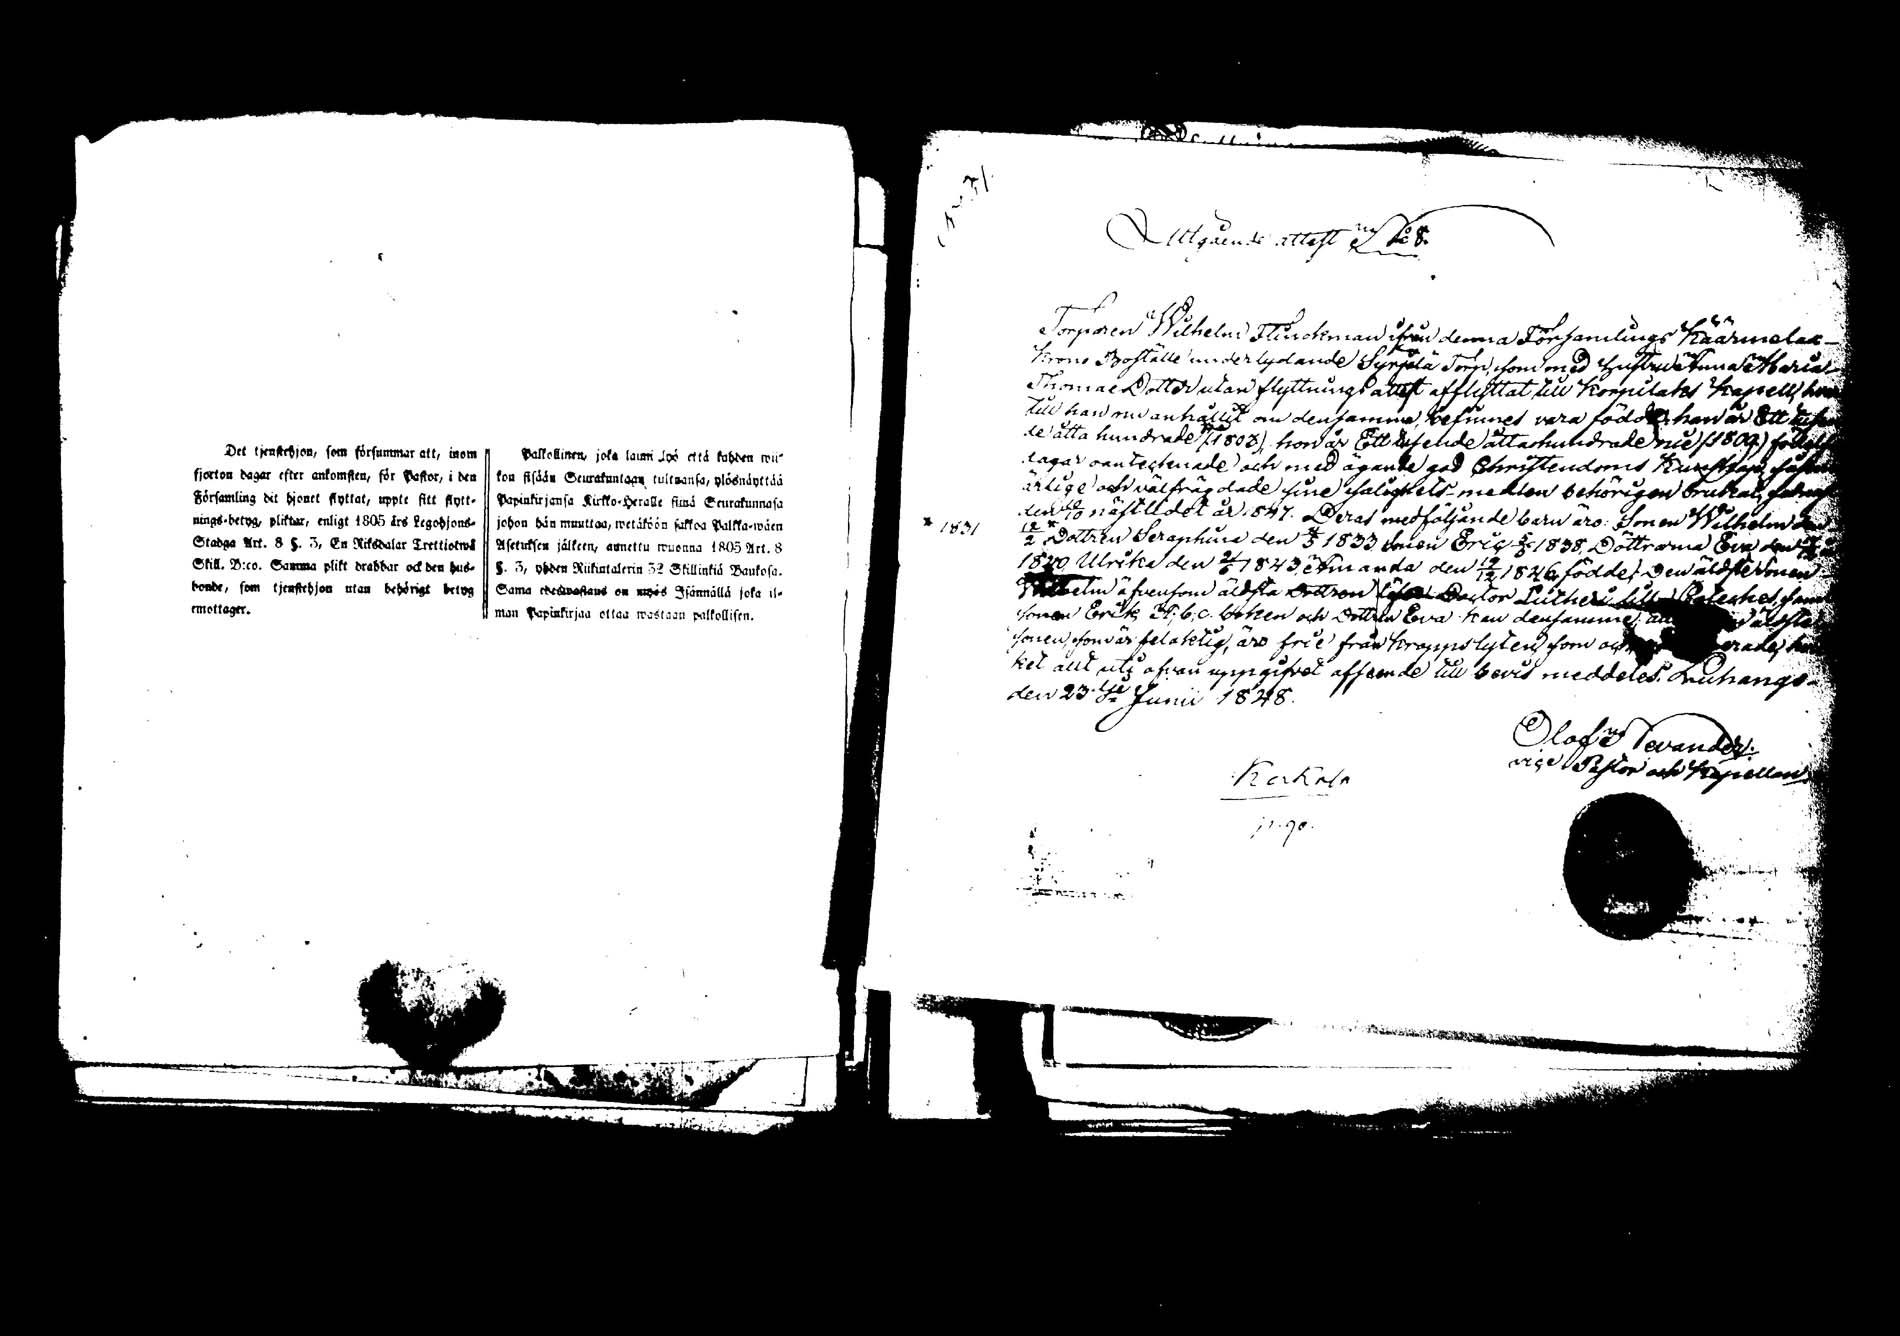 Det tjenstehjon, som försummar att, inom
fjorton dagar efter ankomsten, för Pastor, i den
Församling dit hjonet flyttat, uppte sitt flytt-
nings-betyg, pliktar, enligt 1805 års Legohjons-
Stadga Art. 8 §. 3, En Riksdalar Trettiotwå
Skill. B:co. Samma plikt drabbar ock den hus-
bonde, som tjenstehjon utan behörigt betyg
emottager.
Palkollinen, joka laimi lyö että kahden wii-
kon sisään Seurakuntaan tultuansa, ylösnäyttää
Papinkirjansa Kirkko-Heralle siinä Seurakunnasa
johon hän muuttaa, wetäköön sakkoa Palkka-wäen
Asetuksen jälkeen, annettu wuonna 1805 Art. 8
§. 3, yhden Riikintalerin 32 Skillinkiä Baukosa.
Sama edeswastaus on myös Isännällä joka il-
man Papinkirjaa ottaa wastaan palkollisen.
Utgående attest No 8.
Torparen Wilhelm Flinckman ifrån denna Församlings Käärmelax
Krono Boställe underlydande Syrjälä Torp, som med hustru Anna Maria
Thomae Dotter utan flyttnings attest afflyttat till Korpilaks Kapell,
till han nu anhållit om densamma, befinnes vara födde, han år Ett tusen
de åtta hundrade (1803), hon år Ett tusende åttahundrade nie (1809)
dagar oantecknade och med ägande god Christendoms Kunskap,
ärlige och välfrägdade sine salighets-medlen behörigen brukat,
den /10 nästledet år 1847. Deras medföljande barn äro: Sonen Wilhelm den
* 1831
12/2 * Dottren Seraphina den 1833 Sonen Eric 1838, Döttrarna Eva den
1840 Ulrika den 1843, Amanda den 12/12 1846, födde; Den äldste Sonen
Wilhelm äfvensom äldsta Dottren läsa Doctor Luthers lilla Cateches,
Sonen Erik A, b, c. boken och Dottren Eva kan densamma, äldste
Sonen, som är felaktig, äro frie från kroppslyten, som och
ket allt uti ofvan uppgifvet afseende till bevis meddeles. Luhango
den 23:dje Junii 1848.
Olof Nevander.
vice Pastor och Kapellan
Korkola
p. 90.